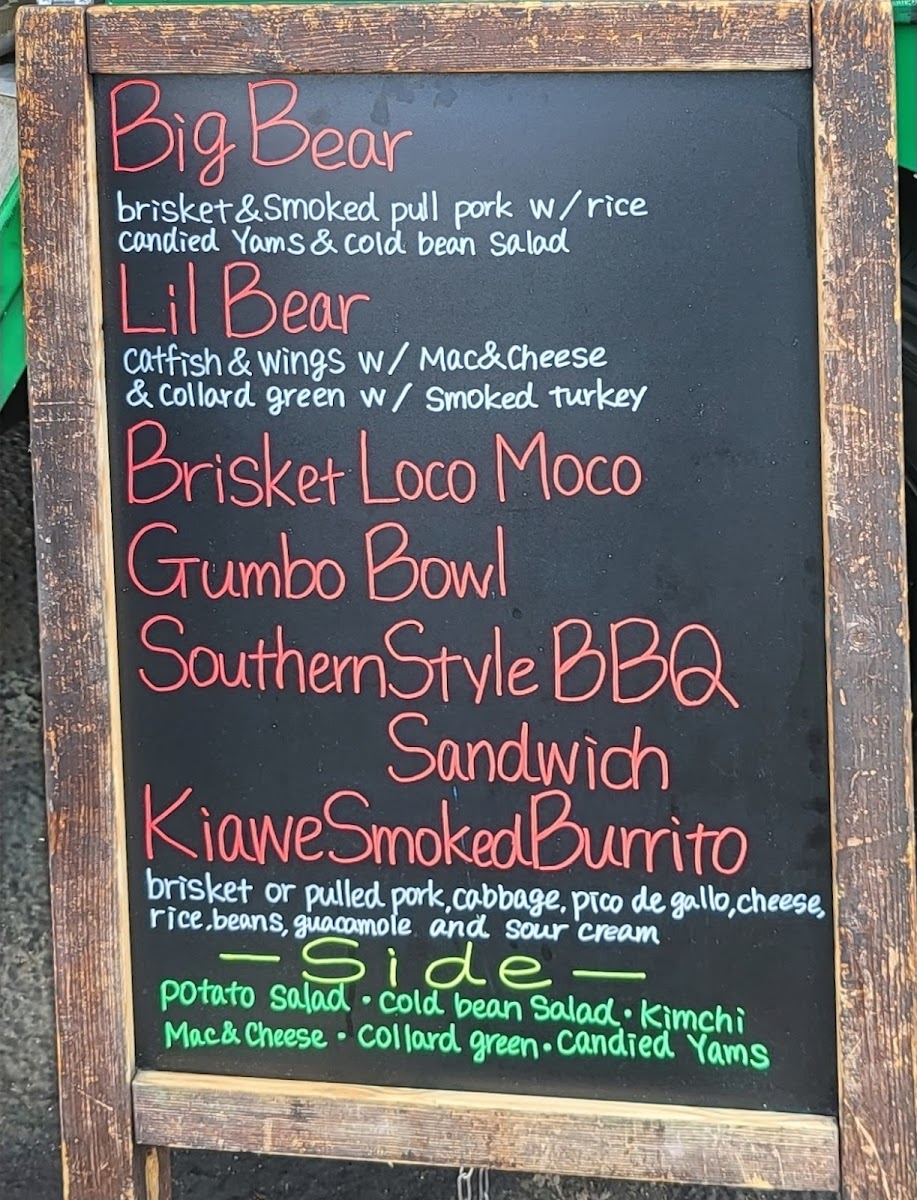 Big Bear
brisket & smoked pull pork w/ rice
candied Yams & cold bean salad
Lil Bear
catfish & wings w/ Mac&Cheese
& collard green w/ smoked turkey
Brisket Loco Moco
Gumbo Bowl
Southern Style BBQ
Sandwich
Kiawe Smoked Burrito
brisket or pulled pork, cabbage, pico de gallo, cheese,
rice, beans, guacamole and sour cream
— Side —
potato salad · cold bean salad · Kimchi
Mac & Cheese · Collard green · Candied Yams